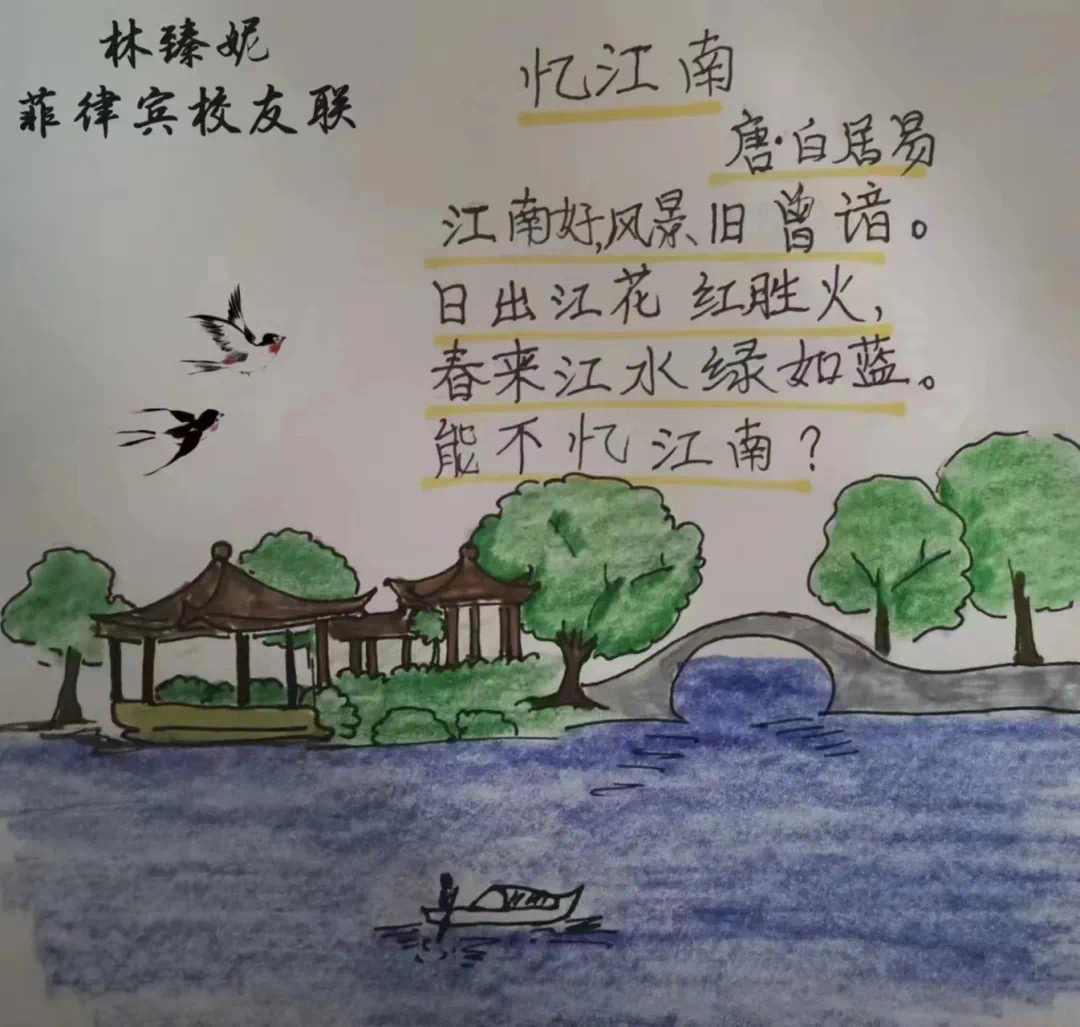 林臻妮
菲律宾校友联
忆江南
唐·白居易
江南好,风景旧曾谙。
日出江花红胜火,
春来江水绿如蓝。
能不忆江南?